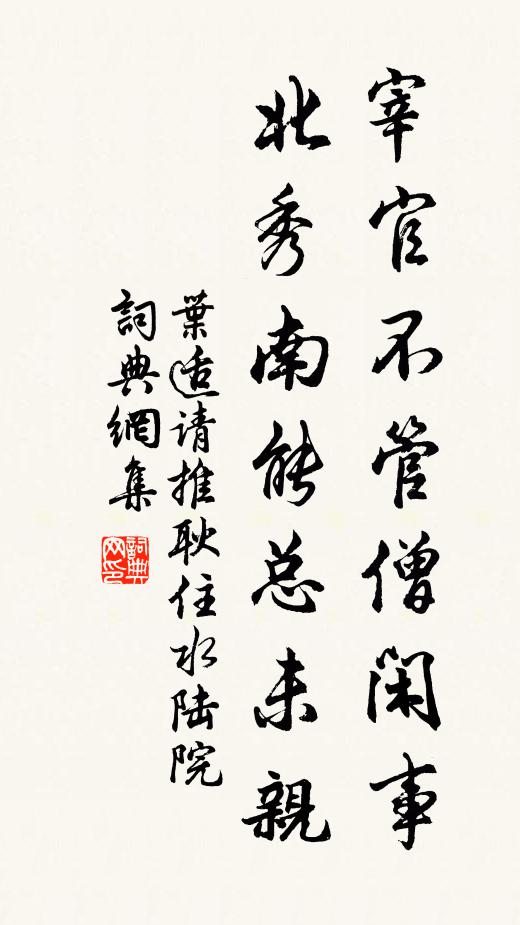 宰官不管僧闲事
北秀南能总未親
葉適请推耿住水陆院
詞典網集
詞典網印